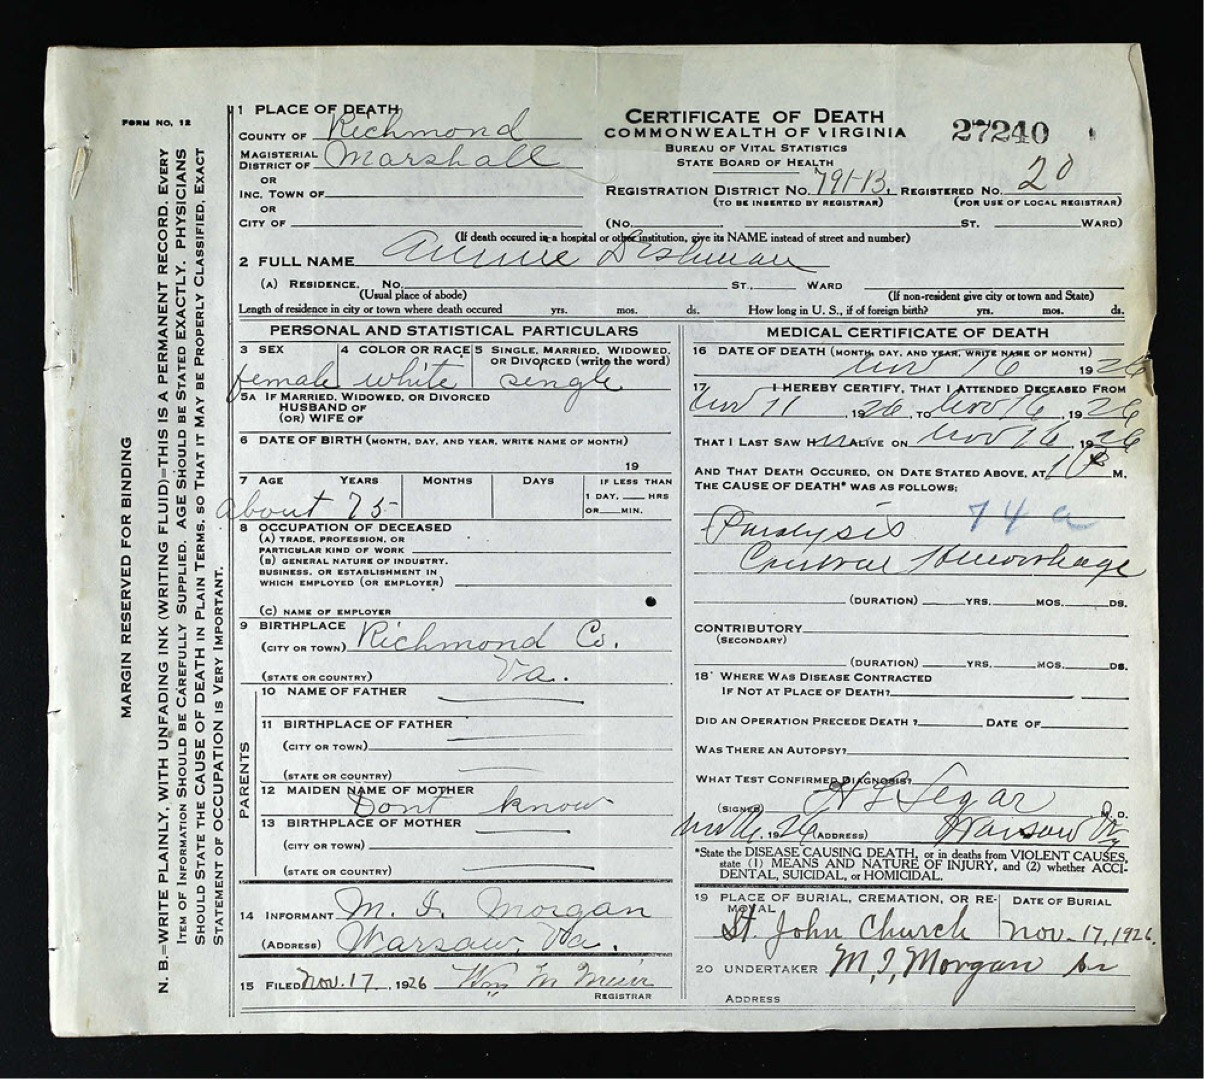 FORM NO. 12
MARGIN RESERVED FOR BINDING
N. B.—WRITE PLAINLY, WITH UNFADING INK (WRITING FLUID)—THIS IS A PERMANENT RECORD. EVERY
ITEM OF INFORMATION SHOULD BE CAREFULLY SUPPLIED. AGE SHOULD BE STATED EXACTLY. PHYSICIANS
SHOULD STATE THE CAUSE OF DEATH IN PLAIN TERMS, SO THAT IT MAY BE PROPERLY CLASSIFIED. EXACT
STATEMENT OF OCCUPATION IS VERY IMPORTANT.
1 PLACE OF DEATH
COUNTY OF Richmond
MAGISTERIAL DISTRICT OF Marshall
OR
INC. TOWN OF
OR
CITY OF
CERTIFICATE OF DEATH
COMMONWEALTH OF VIRGINIA
BUREAU OF VITAL STATISTICS
STATE BOARD OF HEALTH
27240
REGISTRATION DISTRICT NO. 791-B, REGISTERED NO. 20
(TO BE INSERTED BY REGISTRAR) (FOR USE OF LOCAL REGISTRAR)
(NO. ST. WARD)
(If death occured in a hospital or other institution, give its NAME instead of street and number)
2 FULL NAME Annie Dishman
(A) RESIDENCE. NO. ST., WARD
(Usual place of abode) (If non-resident give city or town and State)
Length of residence in city or town where death occured yrs. mos. ds. How long in U. S., if of foreign birth? yrs. mos. ds.
PERSONAL AND STATISTICAL PARTICULARS
3 SEX 4 COLOR OR RACE 5 SINGLE, MARRIED, WIDOWED, OR DIVORCED (write the word)
female white single
5A IF MARRIED, WIDOWED, OR DIVORCED
HUSBAND OF
(OR) WIFE OF
6 DATE OF BIRTH (MONTH, DAY, AND YEAR, WRITE NAME OF MONTH)
19
7 AGE YEARS MONTHS DAYS IF LESS THAN
1 DAY, HRS
OR MIN.
about 75
8 OCCUPATION OF DECEASED
(A) TRADE, PROFESSION, OR
PARTICULAR KIND OF WORK
(B) GENERAL NATURE OF INDUSTRY,
BUSINESS, OR ESTABLISHMENT IN
WHICH EMPLOYED (OR EMPLOYER)
(C) NAME OF EMPLOYER
9 BIRTHPLACE
(CITY OR TOWN) Richmond Co.
(STATE OR COUNTRY) Va.
PARENTS
10 NAME OF FATHER
11 BIRTHPLACE OF FATHER
(CITY OR TOWN)
(STATE OR COUNTRY)
12 MAIDEN NAME OF MOTHER
Dont know
13 BIRTHPLACE OF MOTHER
(CITY OR TOWN)
(STATE OR COUNTRY)
14 INFORMANT M. I. Morgan
(ADDRESS) Warsaw, Va.
15 FILED Nov. 17, 1926 Wm M Muir
REGISTRAR
MEDICAL CERTIFICATE OF DEATH
16 DATE OF DEATH (MONTH, DAY, AND YEAR, WRITE NAME OF MONTH)
Nov 16 1926
17 I HEREBY CERTIFY, THAT I ATTENDED DECEASED FROM
Nov 11 1926, TO Nov 16, 1926
THAT I LAST SAW H ALIVE ON Nov 16, 1926
AND THAT DEATH OCCURED, ON DATE STATED ABOVE, AT M.
THE CAUSE OF DEATH* WAS AS FOLLOWS:
74a
Paralysis
Hemorrhage
(DURATION) YRS. MOS. DS.
CONTRIBUTORY
(SECONDARY)
(DURATION) YRS. MOS. DS.
18 WHERE WAS DISEASE CONTRACTED
IF NOT AT PLACE OF DEATH?
DID AN OPERATION PRECEDE DEATH? DATE OF
WAS THERE AN AUTOPSY?
WHAT TEST CONFIRMED DIAGNOSIS?
(SIGNED) Segar M. D.
Nov 16, 1926 (ADDRESS) Warsaw Va
*State the DISEASE CAUSING DEATH, or in deaths from VIOLENT CAUSES,
state (1) MEANS AND NATURE OF INJURY, and (2) whether ACCI-
DENTAL, SUICIDAL, or HOMICIDAL.
19 PLACE OF BURIAL, CREMATION, OR RE-
MOVAL DATE OF BURIAL
St. John Church Nov. 17, 1926.
20 UNDERTAKER M. I. Morgan
ADDRESS